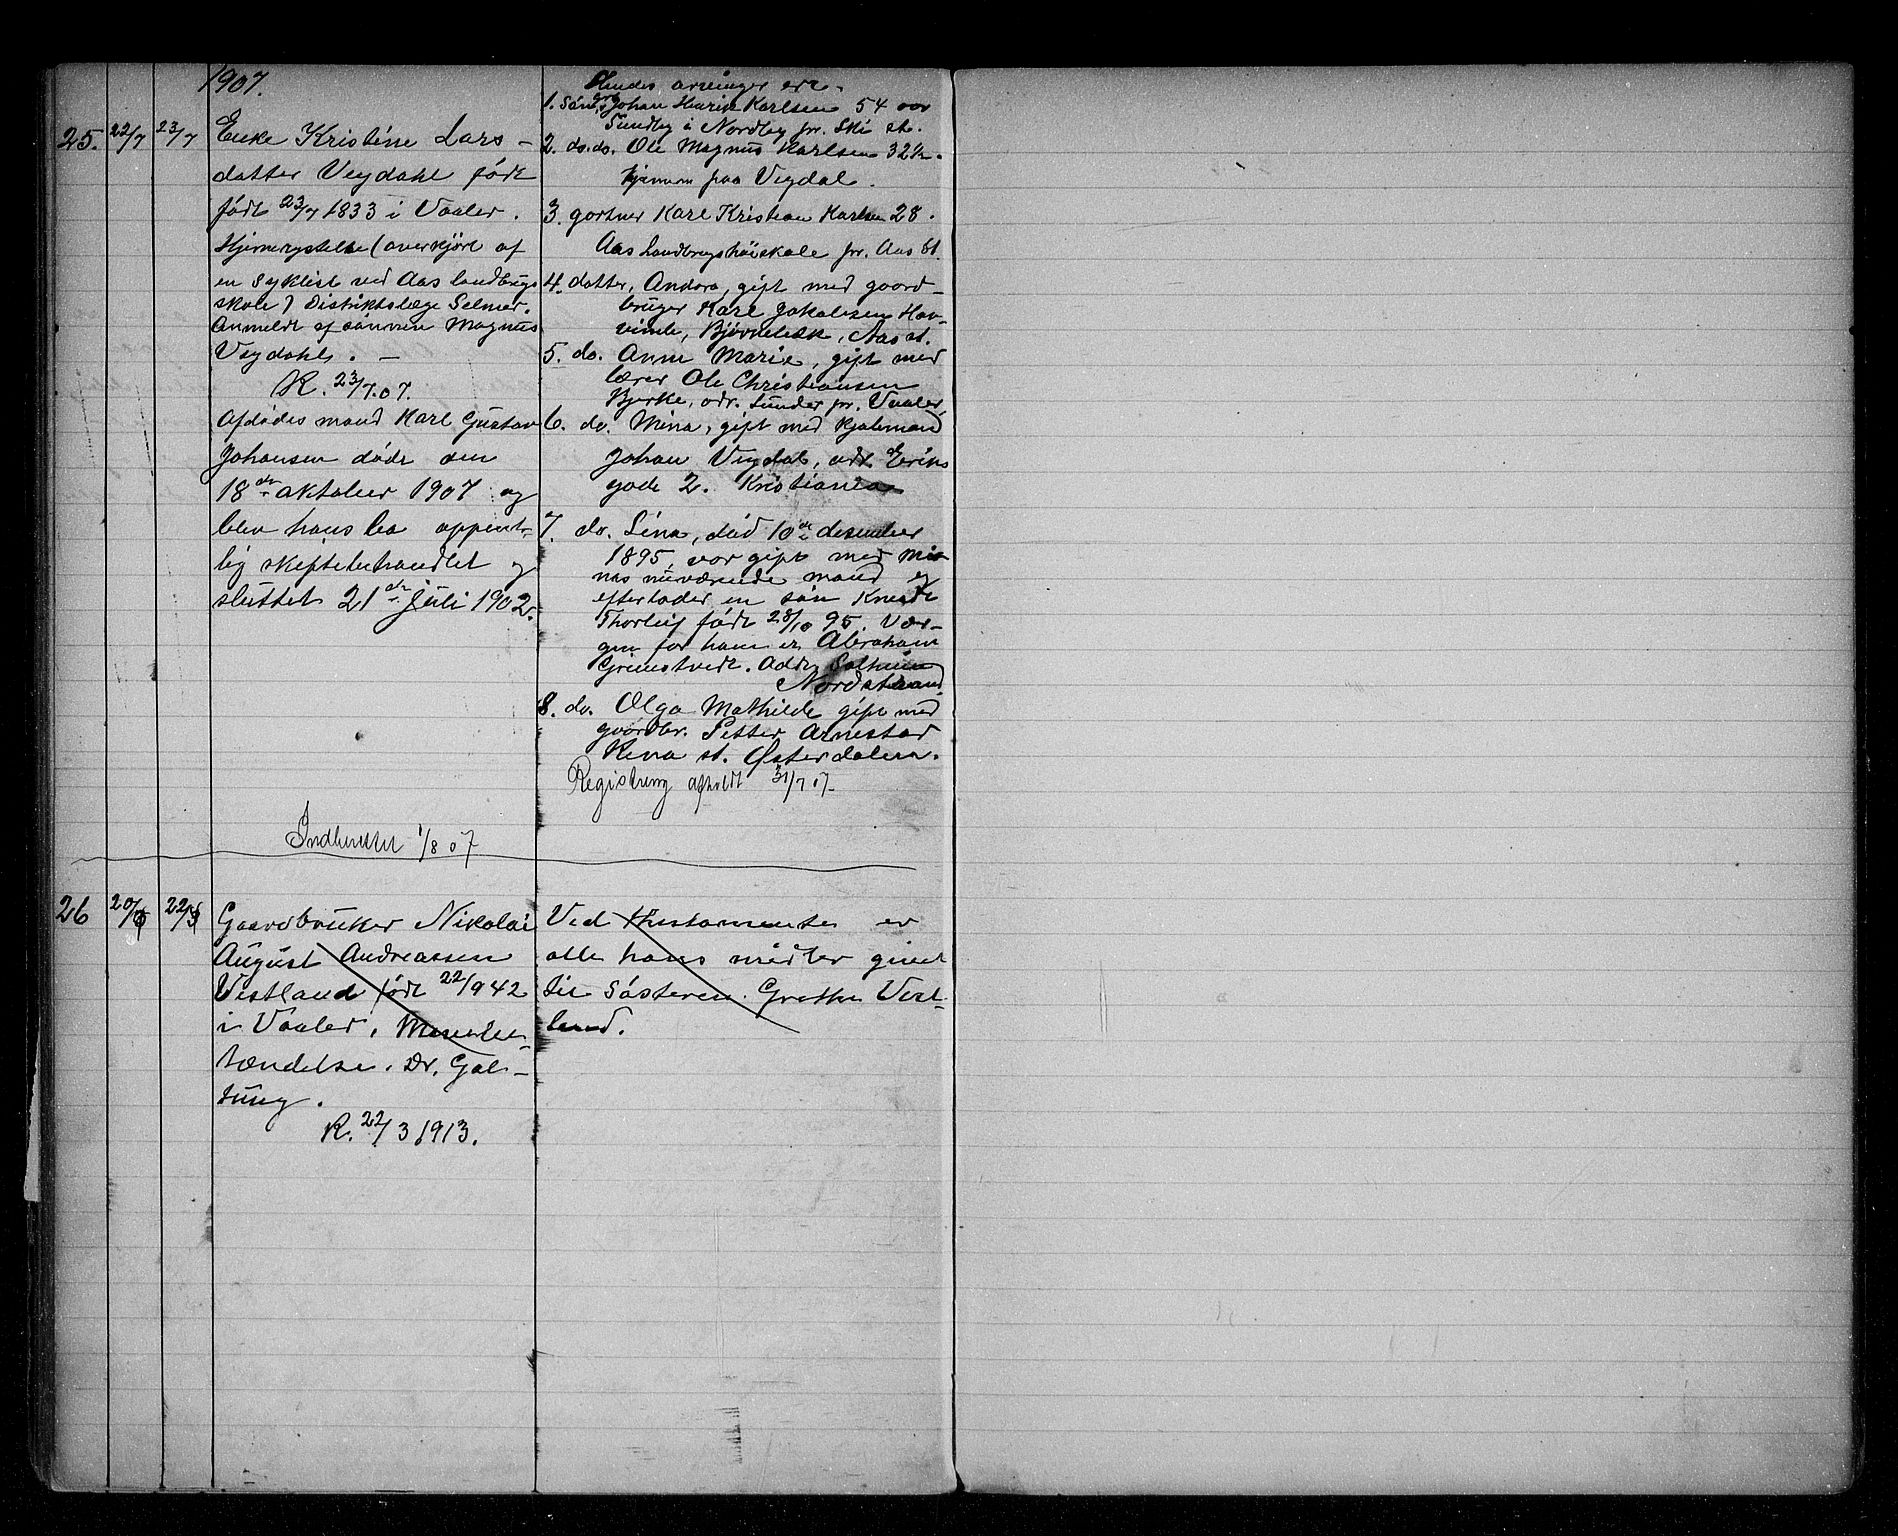 1907.
25. 22/7 23/7
Enke Kristine Lars-
datter Vegdahl født
født 23/7 1833 i Vaaler.
Hjernerystelse (overkjørt af
en syklist ved Aas landbrugs
skole) Distriktslæge Selmer.
Anmeldt af sønnen Magnus
Vegdahl. —
R. 23/7.07.
Afdødes mand Karl Gustav
Johansen døde den
18de oktober 1907 og
blev hans bo oppent-
lig skiftebehandlet og
sluttet 21de juli 1902.
Indberettet 1/8 07
Hendes arvinger ere.
1. Søn, Johan Henrik Karlsen 54 aar
Sundby i Nordby pr. Ski st.
2. do. do. Ole Magnus Karlsen 32 1/2.
hjemme paa Vegdal.
3. gartner Karl Kristian Karlsen 28.
Aas Landbrugshøiskole pr. Aas St.
4. datter, Andora, gift med gaard-
bruger Karl Jakobsen Hav-
vinde, Bjørnebek, Aas st.
5. do. Anne Marie, gift med
lærer Ole Christiansen
Bjerke, adr. Sunder pr. Vaaler.
6. do. Mina, gift med Kjølemand
Johan Vegdal, adr. Eriks
gade 2. Kristiania
7. do. Lina, død 10de desember
1895, var gift med Mi-
nas nuværende mand og
efterlader en søn Knud
Thorleif født 28/10 95. Vær-
gen for ham er Abraham
Grimstvedt. Addr. Solheim
Nordstrand.
8. do. Olga Mathilde gift med
gaardbr. Petter Arnestad
Rena st. Østerdalen.
Registrering afholdt 31/7 07.
26 20/3 22/3
Gaardbruker Nikolai
August Andreassen
Vestland født 22/9 42
i Vaaler,
tændelse. Dr. Gal-
tung.
R. 22/3 1913.
Ved thestamente er
alle hans midler givet
til søsteren Grethe Vest-
lund.